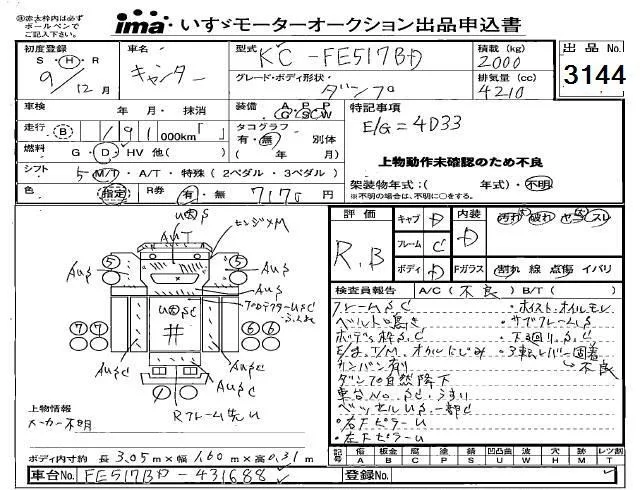 ㊟赤太枠内は必ず
ボールペンで
ご記入下さい。
ima いすゞモーターオークション出品申込書
初度登録
S・H・R
9/12月
車名
キャンター
型式
KC-FE517BD
積載(kg)
2000
出品No.
3144
グレード・ボディ形状
ダンプ
排気量(cc)
4210
車検 年・月・抹消
装備 A・P・P
G・S・W
特記事項
E/G=4D33
走行 B 191 000km「 」
タコグラフ
有・無 別体
( 年 月)
燃料 G・D・HV 他( )
上物動作未確認のため不良
シフト 5 M/T・A/T・特殊(2ペダル・3ペダル)
架装物年式:( 年式)・不明
※不明の場合は、不明に○をする。
色 指定 R券 有・無 7170円
評価
R.B
キャブ D
フレーム C
ボディ D
内装 D
汚れ 破れ ヤニ スレ
Fガラス 割れ 線 点傷 イバリ
検査員報告 A/C(不良)B/T( )
フレームSC
ベルト鳴き
ボデー枠SC
E/g.T/M.オイルにじみ
カンバン有り
ダンプ自然降下
車台No.SC.うすい
ベッセルUS.一部C
・右Fピラーu
・左Fピラーu
・ホイスト.オイルモレ
・サブフレームS
・下廻り.SC
・3転レバー固着
→不良
AUT
AUS
AUS
AUS
AUSC
AUSC
5
5
7 7
6 6
#
Rフレーム先u
上物情報
メーカー不明
ボディ内寸約 長3.05m×幅1.60m×高0.31m
車台No. FE517BD-431688
記号
傷 板金 腐 塗 錆 凹凸曲 波 穴 跡 レツ割
A B C P S U W H M T
登録No.